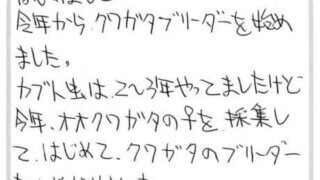 今年から、クワガタブリーダーを始め
ました。
カブト虫は、2〜3年やってましたけど
今年、オオクワガタの♀を、採集し
て、はじめて、クワガタのブリーダー